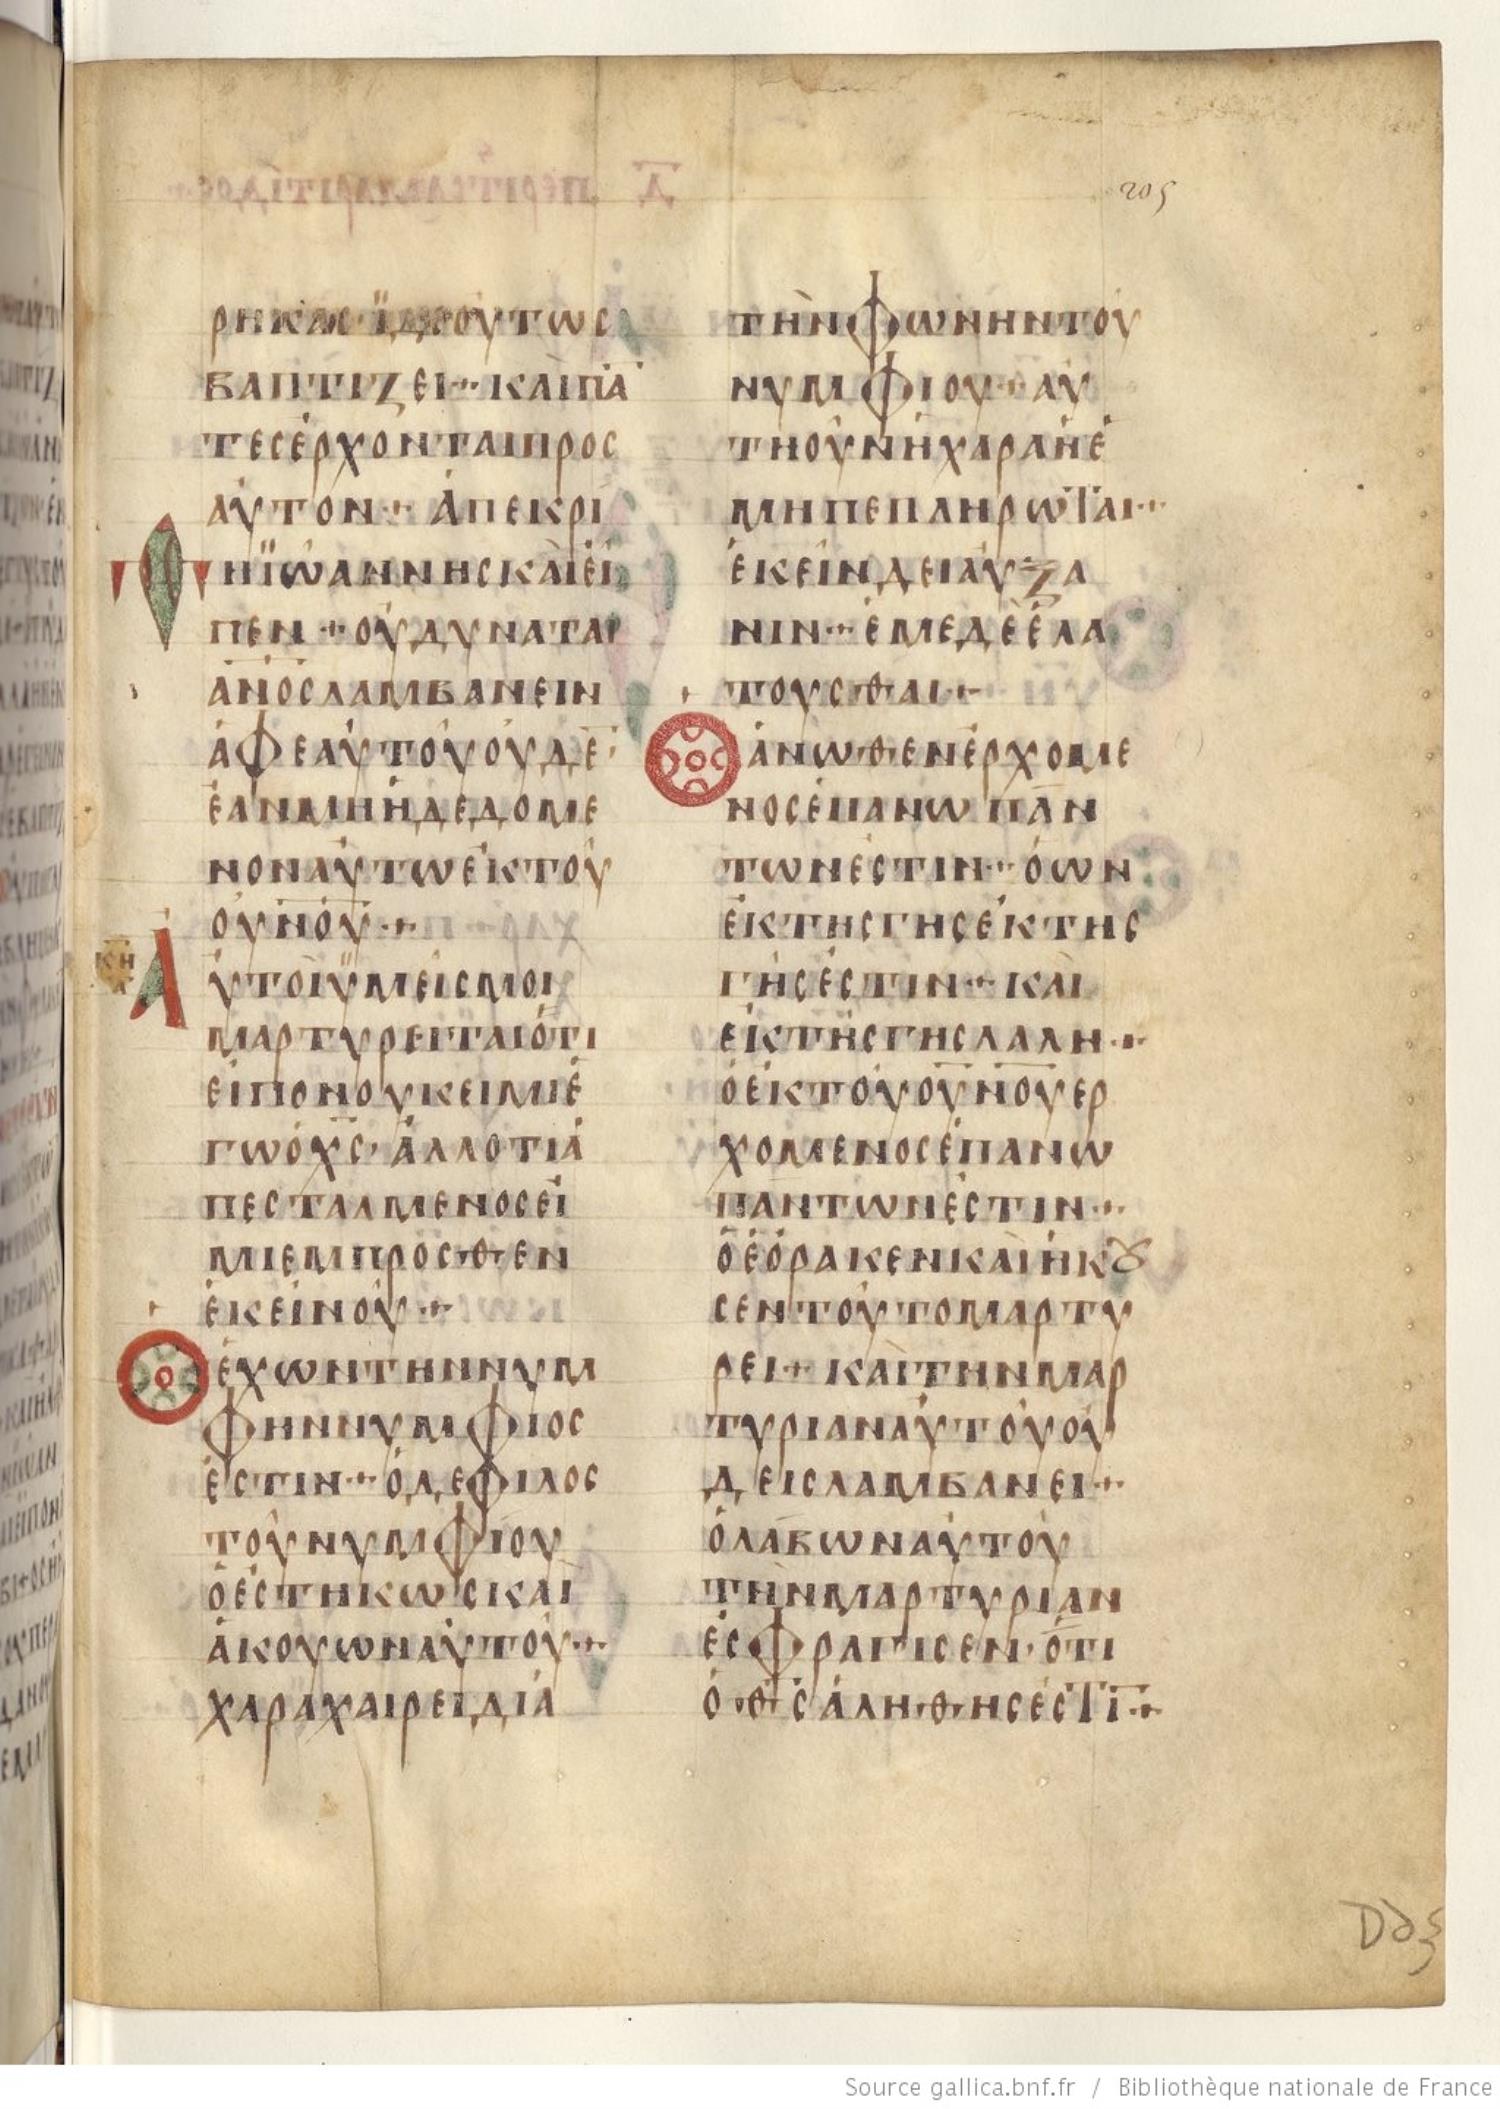 205
ρηκας· ϊδε ουτως
βαπτιζει·+ καὶ πα
τες ἐρχονται προς
ἀυτον·+ ἀπεκρι
θη ϊὠαννης και ἐι
πεν·+ ὀυ δυναται
ἀν̅ο̅ς̅ λαμβανειν
ἀφ εαὐτου ὀυδε
ἐαν μη ἠ δεδομε
νον ἀυτω ἐκ του
ο̅υ̅ν̅ο̅υ̅·+
κη
Αυτοι ϋμεις μοι
μαρτυρειται ὁτι
ἐιπον ουκ ειμι ἐ
γω ὁ χ̅ς̅· ἀλλ οτι ἀ
πεσταλμενος ει
μι εμπροσθεν
ἐκεινου·+
Ο ἐχων την νυμ
φην νυμφιος
ἐστιν·+ ὁ δε φιλος
του νυμφιου
ὁ ἑστηκως και
ἀκουων ἀυτου·+
χαρα χαιρει δια
τὴν φωνην του
νυμφιου·+ αυ
τη ουν ἡ χαρα ἡ ἐ
μη πεπληρωται·+
ἐκεινδει αυξα
νιν·+ ἐμε δε ἐλα
τουσθαι·+
Ο ἀνωθεν ἐρχομε
νος ἐπανω παν
των ἐστιν·+ ὁ ων
ἐκ της γης ἐκ της
γης ἐστιν·+ και
ἐκ της γης λαλη·+
ὁ ἐκ του ο̅υ̅ν̅ο̅υ̅ ερ
χομενος ἐπανω
παντων ἐστιν·+
ὁ ἑορακεν και ἠκȣ
σεν τουτο μαρτυ
ρει·+ και την μαρ
τυριαν ἀυτου ου
δεις λαμβανει·+
ὁ λαβων αυτου
την μαρτυριαν
ἐσφραγισεν· ὁτι
ὁ θ̅ς̅ ἀληθης ἐστι̅·+
Ddξ
Source gallica.bnf.fr / Bibliothèque nationale de France